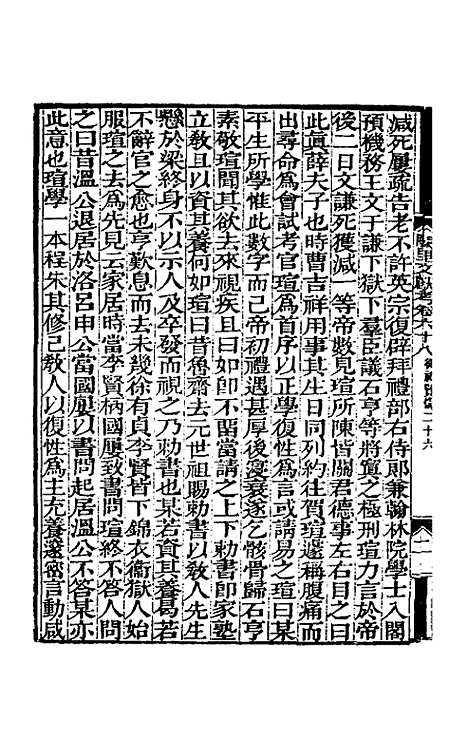 減死屢疏告老不許英宗復辟拜禮部右侍郎兼翰林院學士入閣
預機務王文于謙下獄下羣臣議石亨等將寘之極刑瑄力言於帝
後二日文謙死獲減一等帝數見瑄所陳皆關君德事左右目之曰
此眞薛夫子也時曹吉祥用事其生日同列約往賀瑄遽稱腹痛而
出尋命爲會試考官瑄爲首序以正學復性爲言或請易之瑄曰某
平生所學惟此數字而已帝初禮遇甚厚後寖衰遂乞骸骨歸石亨
素敬瑄聞其欲去來視疾且曰如卽不留當請之上下勅書卽家塾
立敎且以資其養何如瑄曰昔魯齋去元世祖賜勅書以敎人先生
懸於梁終身不以示人及卒發而視之乃勅書也某若資其養曷若
不辭官之愈也亨歎息而去未幾徐有貞李賢皆下錦衣衞獄人始
服瑄之去爲先見云家居時當李賢柄國屢致書問瑄終不答人問
之曰昔溫公退居於洛呂申公當國屢以書問起居溫公不答某亦
此意也瑄學一本程朱其修己敎人以復性爲主充養邃密言動咸